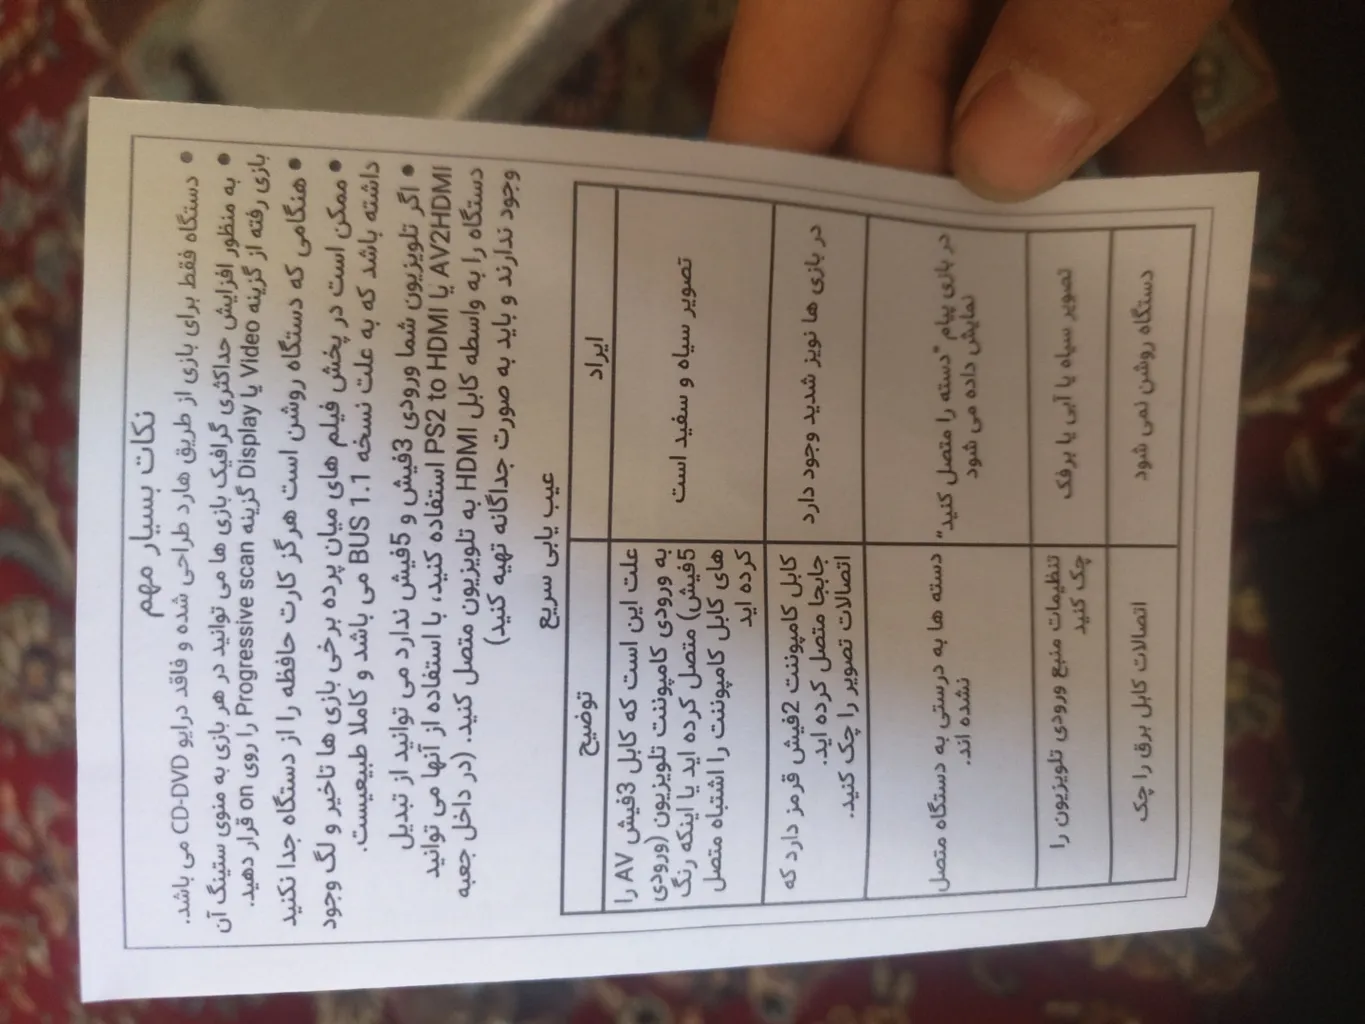 نکات بسیار مهم
• دستگاه فقط برای بازی از طریق هارد طراحی شده و فاقد درایو CD-DVD می باشد.
• به منظور افزایش حداکثری گرافیک بازی ها می توانید در هر بازی به منوی ستینگ آن
بازی رفته از گزینه Video یا Display گزینه Progressive scan را روی on قرار دهید.
• هنگامی که دستگاه روشن است هرگز کارت حافظه را از دستگاه جدا نکنید
• ممکن است در پخش فیلم های میان پرده برخی بازی ها تاخیر و لگ وجود
داشته باشد که به علت نسخه BUS 1.1 می باشد و کاملا طبیعیست.
• اگر تلویزیون شما ورودی 3فیش و 5فیش ندارد می توانید از تبدیل
PS2 to HDMI یا AV2HDMI استفاده کنید، با استفاده از آنها می توانید
دستگاه را به واسطه کابل HDMI به تلویزیون متصل کنید. (در داخل جعبه
وجود ندارند و باید به صورت جداگانه تهیه کنید)
عیب یابی سریع
ایراد
توضیح
تصویر سیاه و سفید است
علت این است که کابل 3فیش AV را
به ورودی کامپوننت تلویزیون (ورودی
5فیش) متصل کرده اید یا اینکه رنگ
های کابل کامپوننت را اشتباه متصل
کرده اید
در بازی ها نویز شدید وجود دارد
کابل کامپوننت 2فیش قرمز دارد که
جابجا متصل کرده اید.
اتصالات تصویر را چک کنید.
در بازی پیام "دسته را متصل کنید"
نمایش داده می شود
دسته ها به درستی به دستگاه متصل
نشده اند.
تصویر سیاه یا آبی یا برفک
تنظیمات منبع ورودی تلویزیون را
چک کنید
دستگاه روشن نمی شود
اتصالات کابل برق را چک